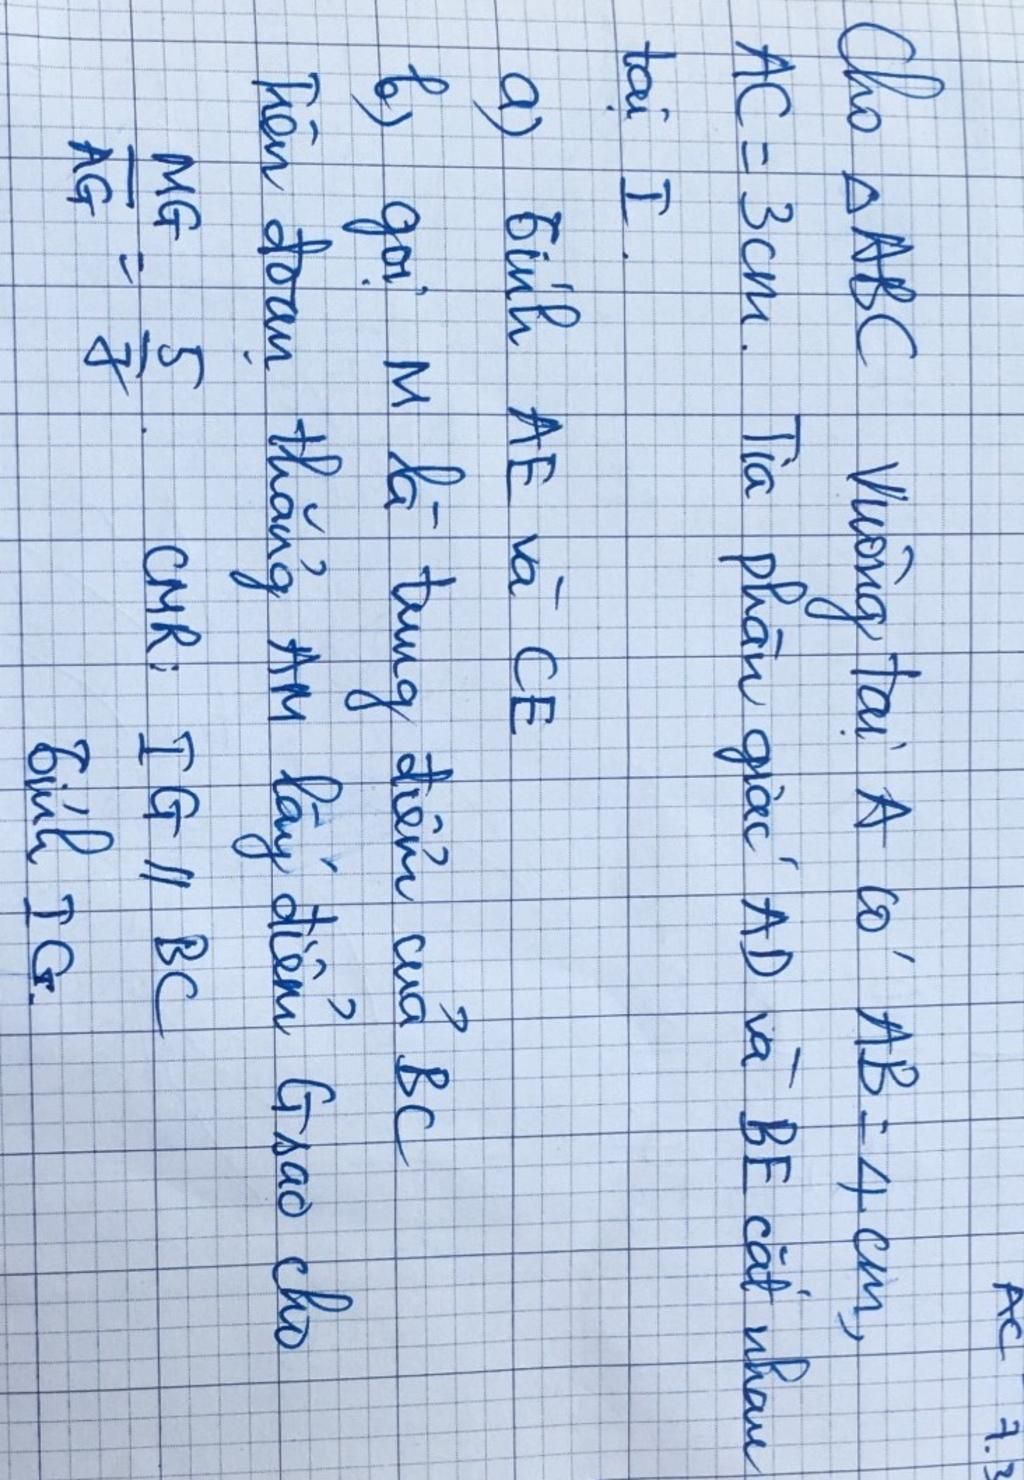 AC 7.3
Cho △ABC vuông tại A có AB = 4 cm,
AC = 3cm. Tia phân giác AD và BE cắt nhau
tại I.
a) Tính AE và CE
b) gọi M là trung điểm của BC
Trên đoạn thẳng AM lấy điểm G sao cho
MG/AG = 5/7. CMR: IG // BC
Tính IG.